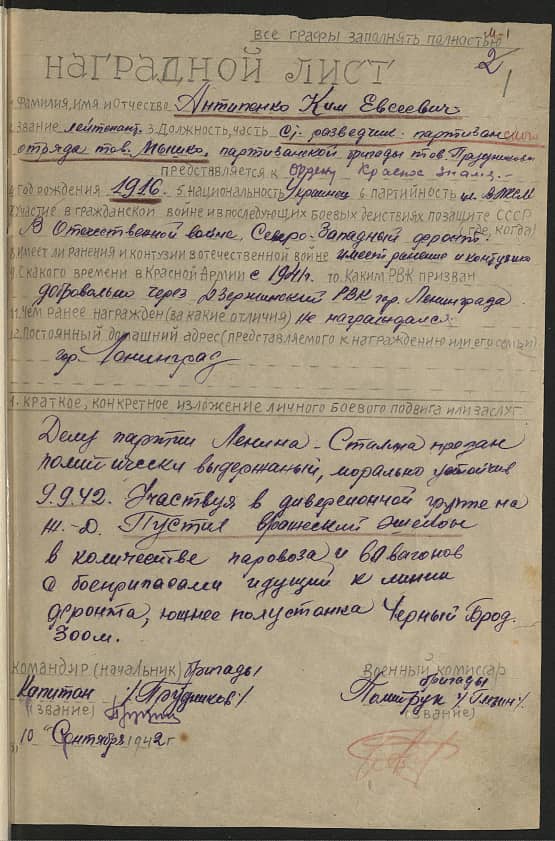 все графы заполнять полностью
2
1
НАГРАДНОЙ ЛИСТ
1. Фамилия, имя и отчество Антипенко Ким Евсеевич
2. Звание лейтенант 3. Должность, часть Ст. разведчик партизанского
отряда тов. Мышко, партизанской бригады тов. Прудникова
представляется к Ордену Красное знамя.
4. год рождения 1916 5. национальность Украинец 6 партийность чл. ВЛКСМ
7. Участие в гражданской войне и последующих боевых действиях по защите СССР
(где, когда)
В Отечественной войне, Северо-Западный фронт.
8. Имеет ли ранения и контузии в отечественной войне имеет ранение и контузию
9. С какого времени в Красной Армии с 1941г. 10. Каким РВК призван
добровольно через Дзержинский РВК гор. Ленинграда
11. Чем ранее награжден (за какие отличия) не награждался.
12. Постоянный домашний адрес (представляемого к награждению или его семьи)
гор. Ленинград
1. Краткое, конкретное изложение личного боевого подвига или заслуг
Делу партии Ленина-Сталина предан
политически выдержаный, морально устойчив
9.9.42. Участвуя в диверсионной группе на
ж.-д. Пустил вражеский эшелон
в количестве паровоза и 60 вагонов
с боеприпасами идущий к линии
фронта, южнее полустанка Черный Брод.
300м.
Командир (начальник) бригады
Капитан /Прудников/
(звание)
Военный комиссар
бригады
Политрук
(звание)
"10" Сентября 1942г